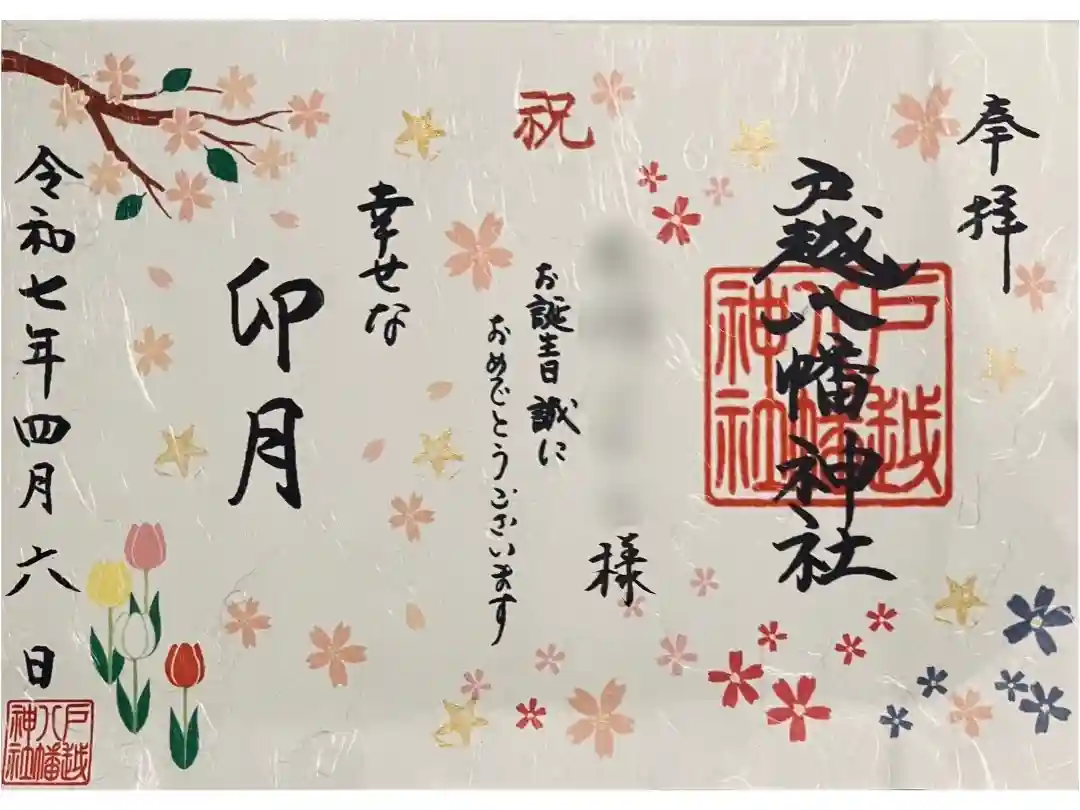 奉拝
戸越八幡神社
戸越
八幡
神社
祝
様
お誕生日 誠に
おめでとうございます
幸せな
卯月
令和七年四月六日
戸越
八幡
神社